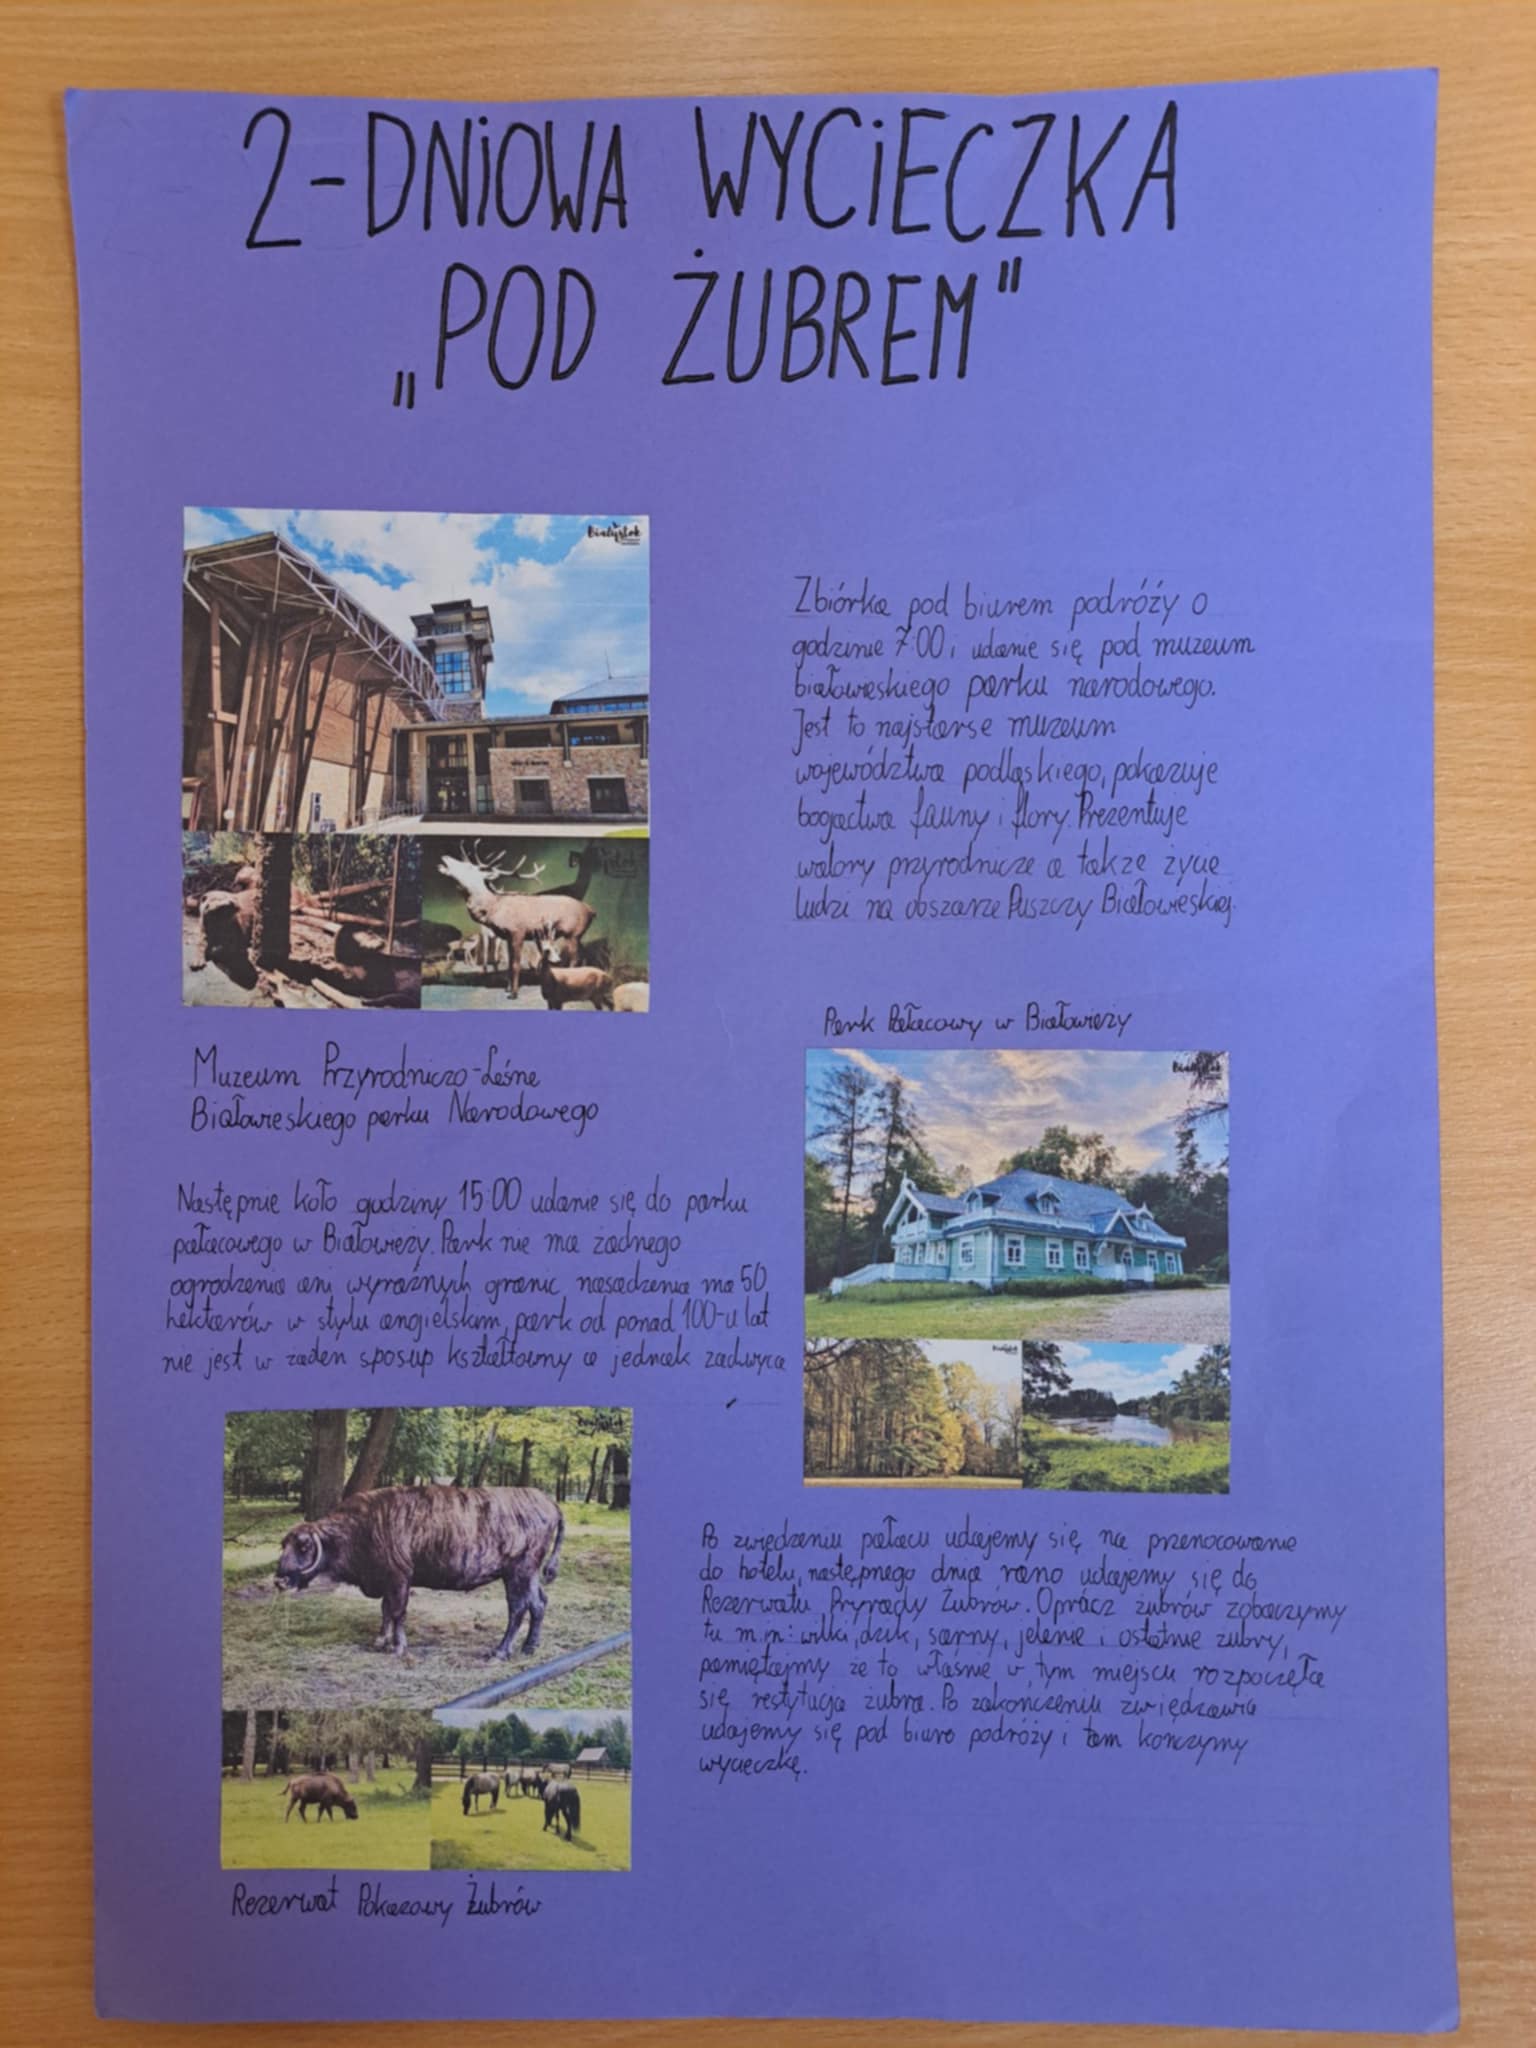 2-DNiOWA WYCiECZKA
„POD ŻUBREM"
Białystok
Zbiórka pod biurem podróży o
godzinie 7:00, udanie się pod muzeum
białowieskiego parku narodowego.
Jest to najstarse muzeum
województwa podlaskiego, pokazuje
bogactwa fauny i flory. Prezentuje
walory przyrodnicze a także życie
ludzi na obszarze Puszczy Białowieskiej.
Muzeum Przyrodniczo-Leśne
Białowieskiego parku Narodowego
Park Pałacowy w Białowieży
Białystok
Następnie koło godziny 15:00 udanie się do parku
pałacowego w Białowieży. Park nie ma żadnego
ogrodzenia ani wyraźnych granic, nasadzenia ma 50
hektarów w stylu angielskim, park od ponad 100-u lat
nie jest w żaden sposup kształtowny a jednak zachwyca
Białystok
Białystok
Po zwiedzeniu pałacu udajemy się na przenocowanie
do hotelu, następnego dnia rano udajemy się do
Rezerwatu Pryrody Żubrów. Oprócz żubrów zobaczymy
tu m.in: wilki, dzik, sarny, jelenie i ostatnie żubry,
pamiętajmy że to właśnie w tym miejscu rozpoczęła
się restytucja żubra. Po zakończeniu zwiedzania
udajemy się pod biuro podróży i tam kończymy
wycieczkę.
Rezerwat Pokazowy Żubrów